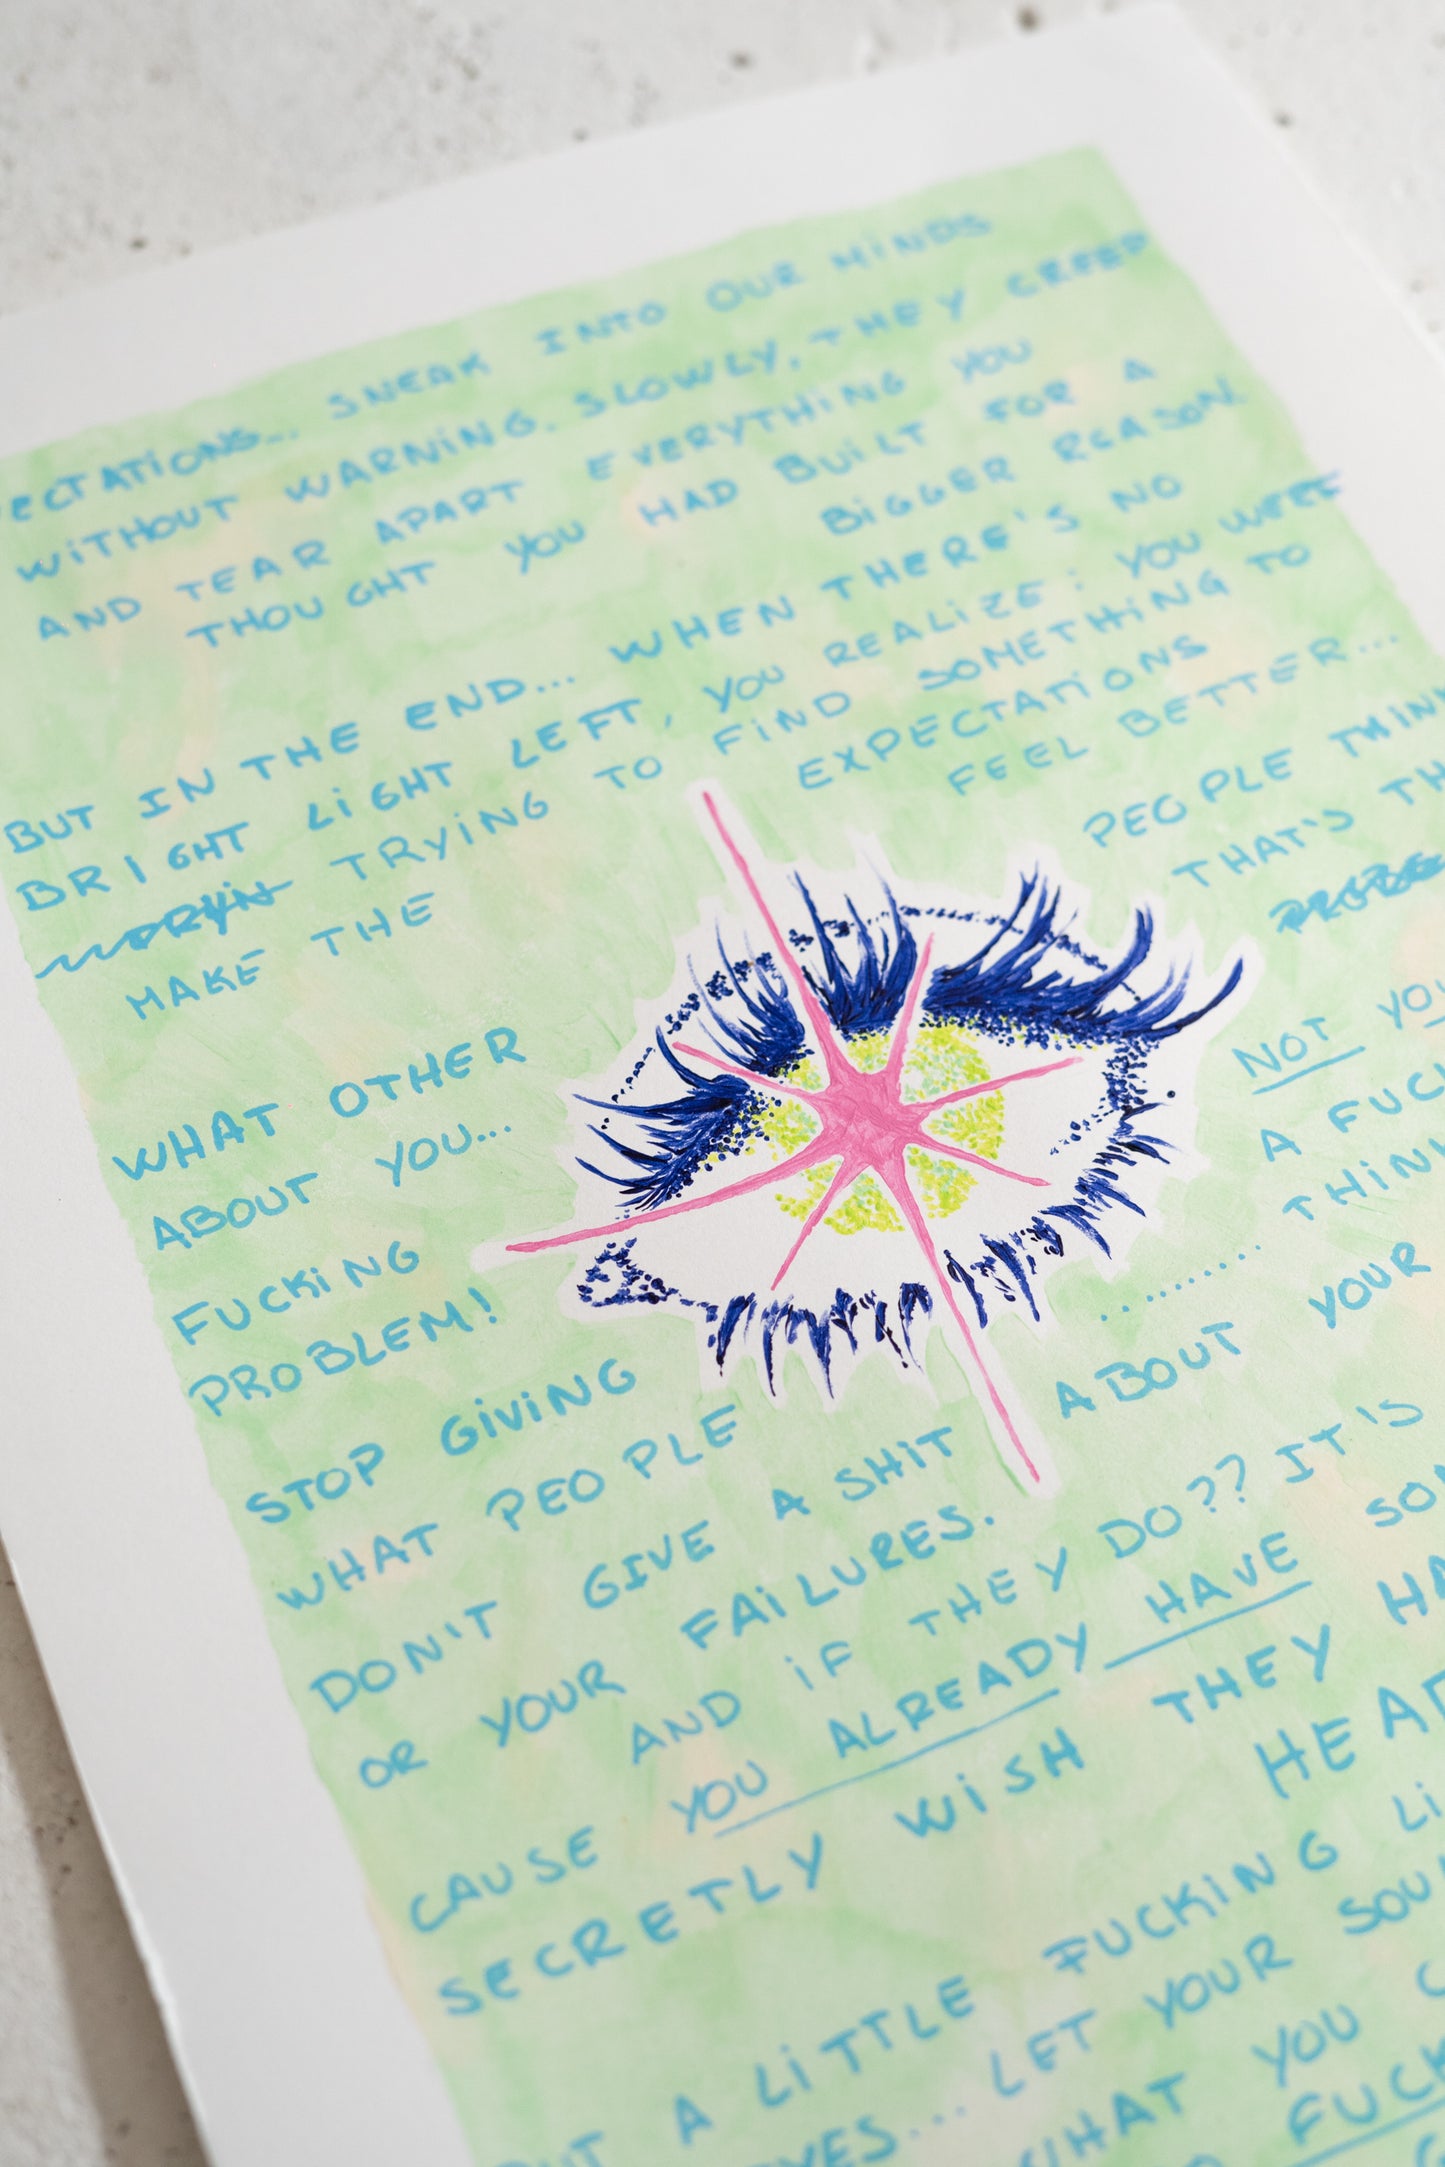 ECTATIONS... SNEAK INTO OUR MINDS
WITHOUT WARNING. SLOWLY, THEY CREEP
AND TEAR APART EVERYTHING YOU
THOUGHT YOU HAD BUILT FOR A
BIGGER REASON.
BUT IN THE END... WHEN THERE'S NO
BRIGHT LIGHT LEFT, YOU REALIZE: YOU WERE
TRYING TO FIND SOMETHING TO
MAKE THE EXPECTATIONS
FEEL BETTER...
WHAT OTHER PEOPLE THINK
ABOUT YOU... THAT'S TH
FUCKING NOT YO
PROBLEM! A FUC
STOP GIVING THIN
WHAT PEOPLE ..........
DON'T GIVE A SHIT ABOUT YOUR
OR YOUR FAILURES.
AND IF THEY DO?? IT'S
CAUSE YOU ALREADY HAVE SO
SECRETLY WISH THEY HA
HEA
UT A LITTLE FUCKING LI
YES... LET YOUR SOU
WHAT YOU C
FUCK